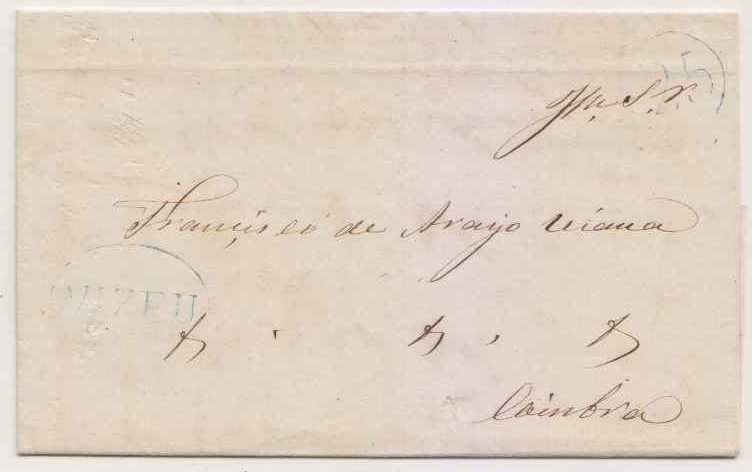 Illm. S.r
Francisco de Araujo Viana
VIZEU
Coimbra